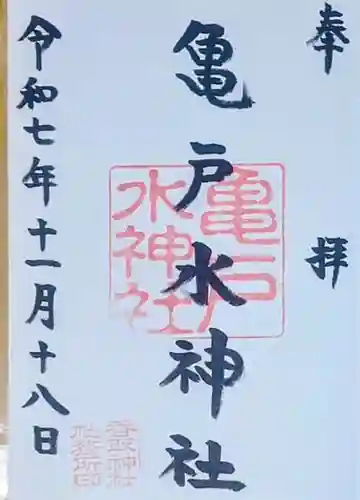 奉拝
亀戸水神社
亀戸水神社
令和七年十一月十八日
香取神社社務所印